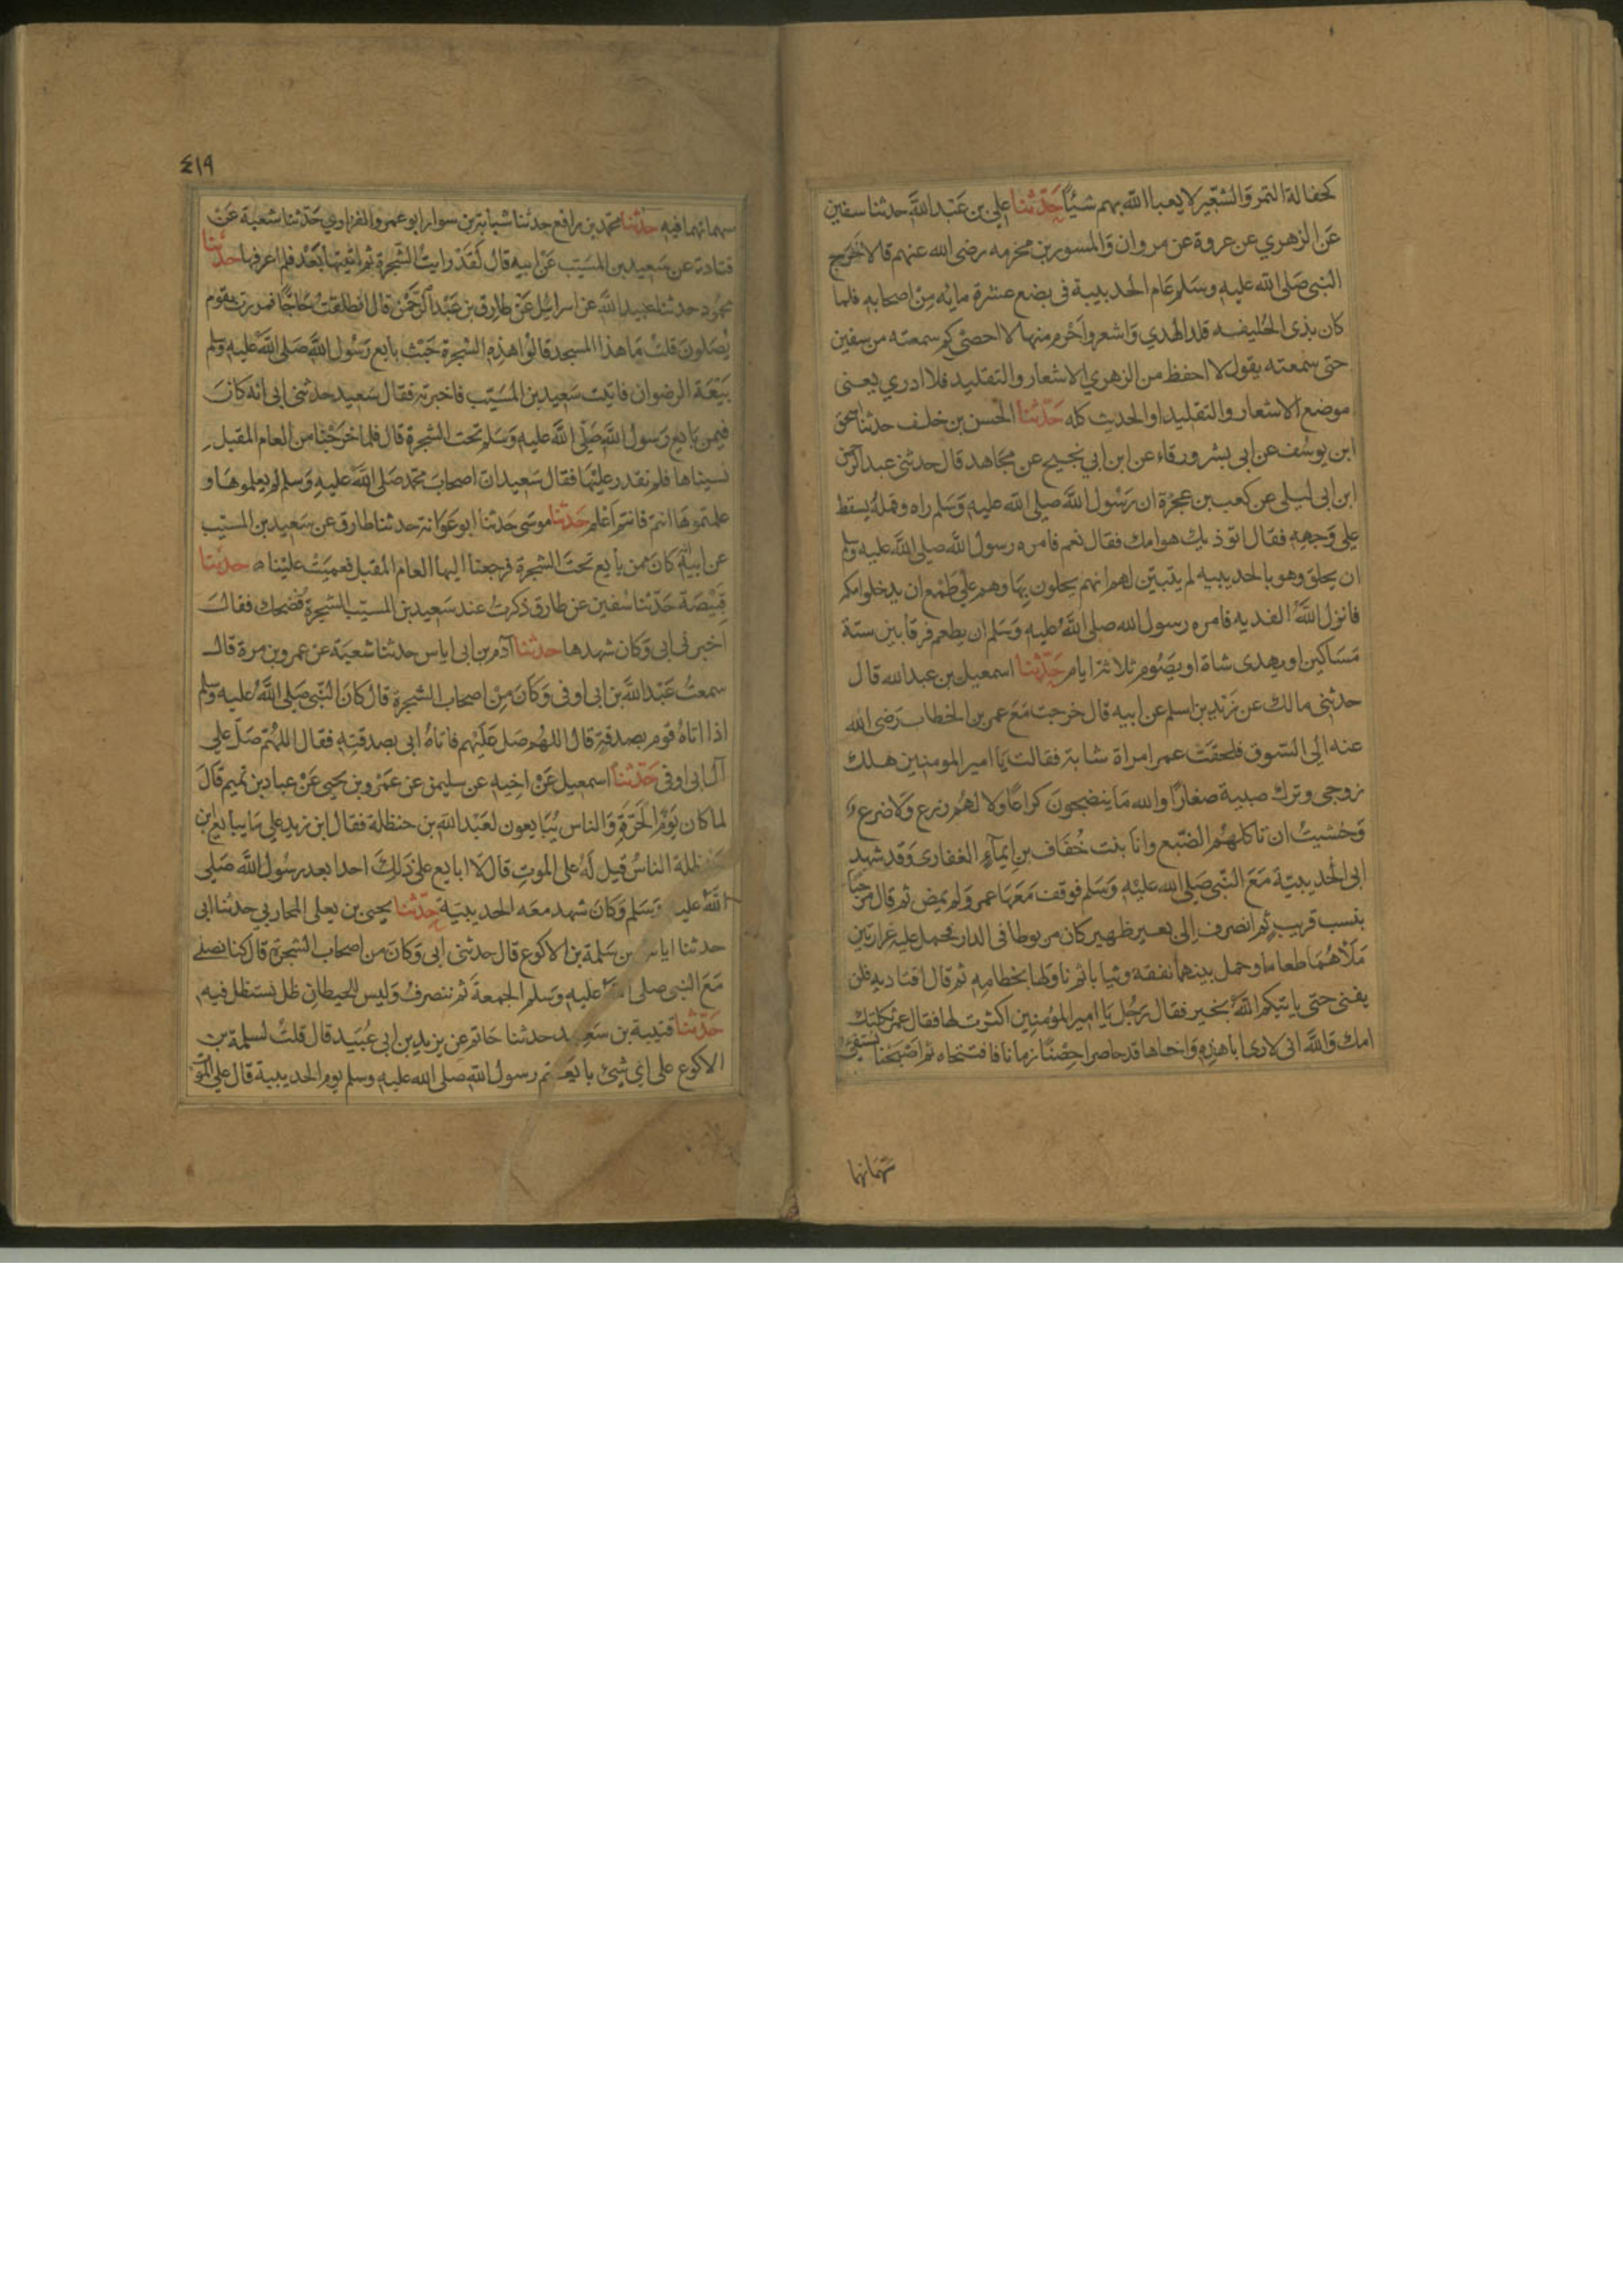 كحفالة التمر والشعير لا يعبا الله بهم شيئا حدثنا علي بن عبد الله حدثنا سفين
عن الزهري عن عروة عن مروان والمسور بن مخرمه رضى الله عنهم قالا خرج
النبى صلى الله عليه وسلم عام الحديبية فى بضع عشرة مايه من اصحابه فلما
كان بذى الحليفه قلد الهدي واشعر واحرم منها لا احصى كم سمعته من سفين
حتى سمعته يقول لا احفظ من الزهري الاشعار والتقليد فلا ادري يعنى
موضع الاشعار والتقليد او الحديث كله حدثنا الحسن بن خلف حدثنا اسحق
ابن يوسف عن ابى بشر ورقاء عن ابن ابي نجيح عن مجاهد قال حدثنى عبد الرحمن
ابن ابى ليلى عن كعب بن عجرة ان رسول الله صلى الله عليه وسلم راه وقمله يسقط
على وجهه فقال اتوذيك هوامك فقال نعم فامره رسول الله صلى الله عليه وسلم
ان يحلق وهو بالحديبيه لم يتبين لهم انهم يحلون بها وهم على طمع ان يدخلوا مكه
فانزل الله الفديه فامره رسول الله صلى الله عليه وسلم ان يطعم فرقا بين ستة
مساكين او يهدى شاة او يصوم ثلاثة ايام حدثنا اسمعيل بن عبد الله قال
حدثنى مالك عن زيد بن اسلم عن ابيه قال خرجت مع عمر بن الخطاب رضى الله
عنه الى السوق فلحقت عمر امراة شابة فقالت يا امير المومنين هلك
زوجى وترك صبية صغارا والله ما ينضجون كراعا ولا لهم زرع ولا ضرع
وخشيت ان تاكلهم الضبع وانا بنت خفاف بن ايماء الغفارى وقد شهد
ابى الحديبية مع النبى صلى الله عليه وسلم فوقف معها عمر ولم يمض ثم قال مرحبا
بنسب قريب ثم انصرف الى بعير ظهير كان مربوطا فى الدار فحمل عليه غرارتين
ملاهما طعاما وحمل بينهما نفقة وثيابا ثم ناولها بخطامه ثم قال اقتاديه فلن
يفنى حتى ياتيكم الله بخير فقال رجل يا امير المؤمنين اكثرت لها فقال عمر ثكلتك
امك والله انى لارى ابا هذه واخاها قد حاصرا حصنا زمانا فافتتحاه ثم اصبحنا نستفئ
سهمانهما
٤١٩
سهمانهما فيه حدثنا محمد بن رافع حدثنا شبابة بن سوار ابو عمرو الفزاوي حدثنا شعبة عن
قتادة عن سعيد بن المسيب عن ابيه قال لقد رايت الشجرة ثم اتيتها بعد فلم اعرفها حدثنا
محمود حدثنا عبيد الله عن اسرائيل عن طارق بن عبد الرحمن قال انطلقت حاجا فمررت بقوم
يصلون قلت ما هذا المسجد قالوا هذه الشجرة حيث بايع رسول الله صلى الله عليه وسلم
بيعة الرضوان فاتيت سعيد بن المسيب فاخبرته فقال سعيد حدثنى ابى انه كان
فيمن بايع رسول الله صلى الله عليه وسلم تحت الشجرة قال فلما خرجنا من العام المقبل
نسيناها فلم نقدر عليها فقال سعيد ان اصحاب محمد صلى الله عليه وسلم لم يعلموها و
علمتموها انتم فانتم اعلم حدثنا موسى حدثنا ابو عوانة حدثنا طارق عن سعيد بن المسيب
عن ابيه انه كان ممن بايع تحت الشجرة فرجعنا اليها العام المقبل فعميت علينا حدثنا
قبيصة حدثنا سفين عن طارق ذكرت عند سعيد بن المسيب الشجرة فضحك فقال
اخبرنى ابى وكان شهدها حدثنا آدم بن ابى اياس حدثنا شعبة عن عمرو بن مرة قال
سمعت عبد الله بن ابى اوفى وكان من اصحاب الشجرة قال كان النبى صلى الله عليه وسلم
اذا اتاه قوم بصدقة قال اللهم صل عليهم فاتاه ابى بصدقته فقال اللهم صل على
آل ابى اوفى حدثنا اسمعيل عن اخيه عن سليمن عن عمرو بن يحيى عن عباد بن تميم قال
لما كان يوم الحرة والناس يبايعون لعبد الله بن حنظلة فقال ابن زيد على ما يبايع ابن
حنظلة الناس قيل له على الموت قال لا ابايع على ذلك احدا بعد رسول الله صلى
الله عليه وسلم وكان شهد معه الحديبية حدثنا يحيى بن يعلى المحاربي حدثنا ابى
حدثنا اياس بن سلمة بن الاكوع قال حدثنى ابى وكان من اصحاب الشجرة قال كنا نصلى
مع النبى صلى الله عليه وسلم الجمعة ثم ننصرف وليس للحيطان ظل نستظل فيه
حدثنا قتيبة بن سعيد حدثنا حاتم عن يزيد بن ابى عبيد قال قلت لسلمة بن
الاكوع على اى شئ بايعتم رسول الله صلى الله عليه وسلم يوم الحديبية قال على الموت